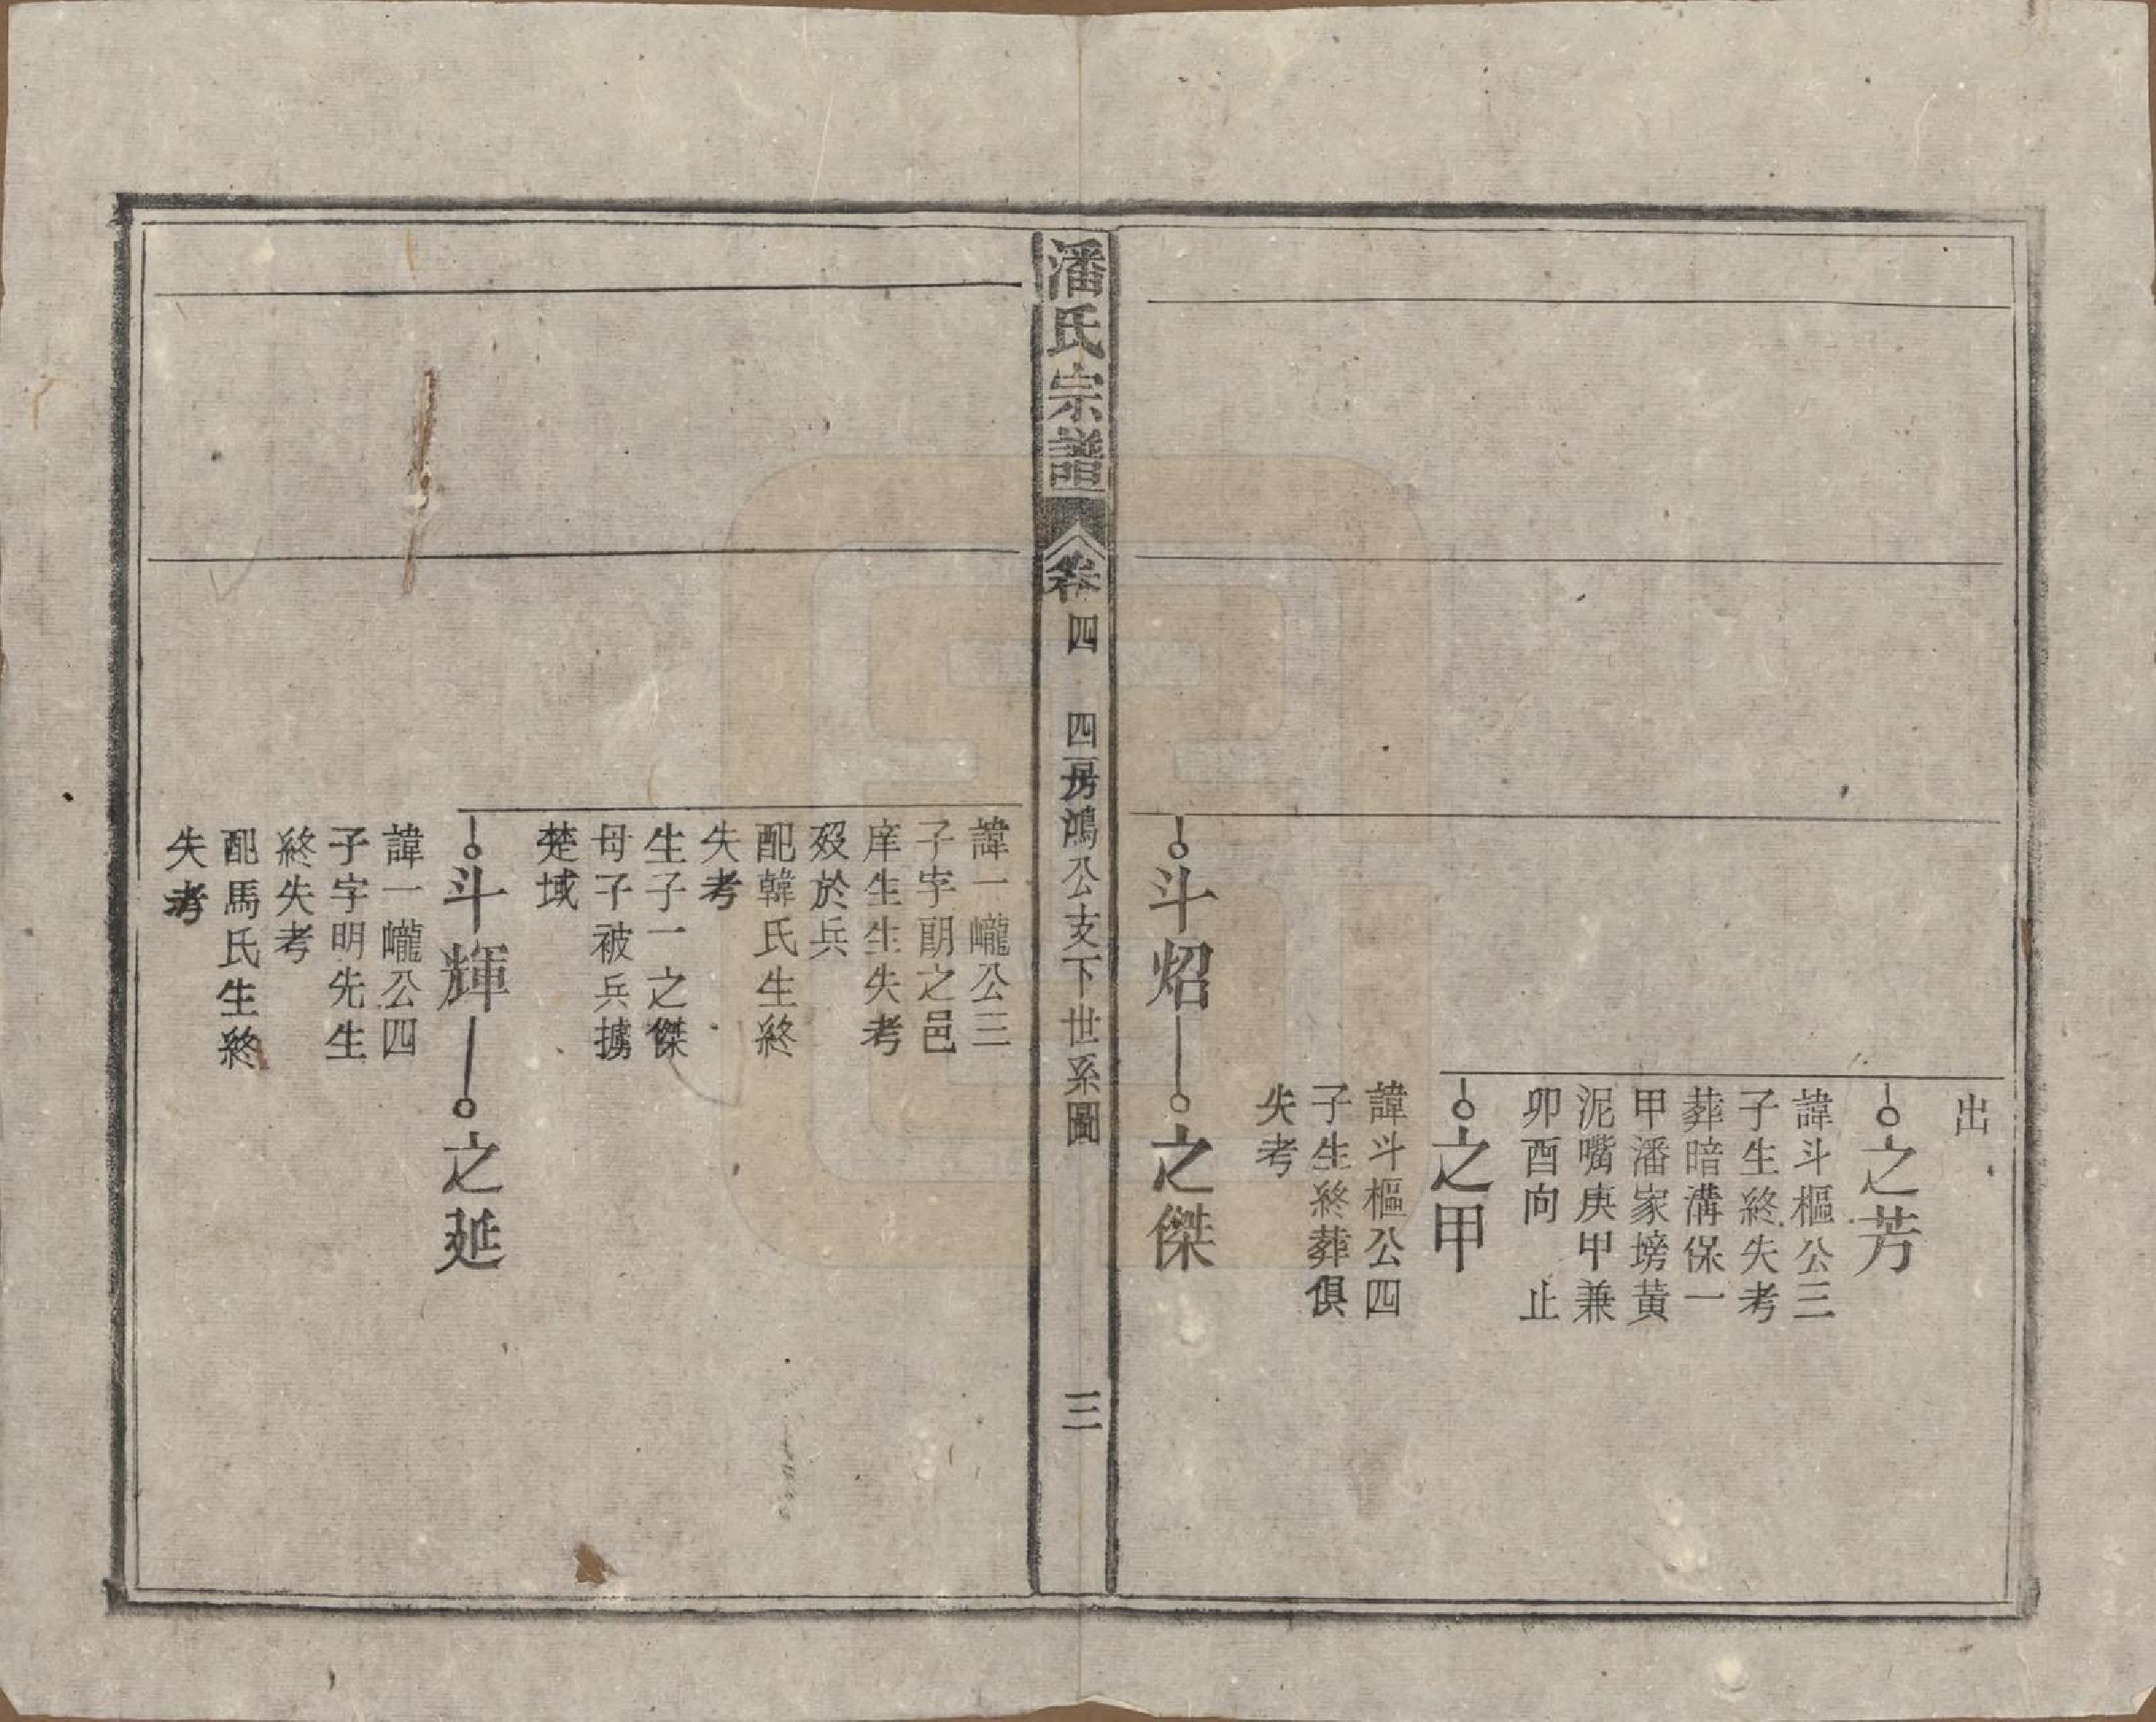 出
之芳
諱斗樞公三
子生終失考
葬暗溝保一
甲潘家塝黄
泥嘴庚甲兼
卯酉向 止
之甲
諱斗樞公四
子生終葬俱
失考
斗炤 之傑
潘氏宗譜 卷四 四房鴻公支下世系圖 三
諱一巄公三
子字朗之邑
庠生生失考
歿於兵
配韓氏生終
失考
生子一之傑
母子被兵擄
楚域
斗輝 之延
諱一巄公四
子字明先生
終失考
配馬氏生終
失考